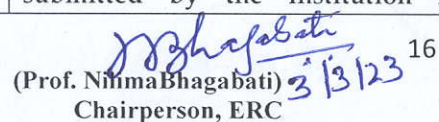 submitted by the institution
NBhagabati
16
(Prof. NilimaBhagabati) 3/3/23
Chairperson, ERC